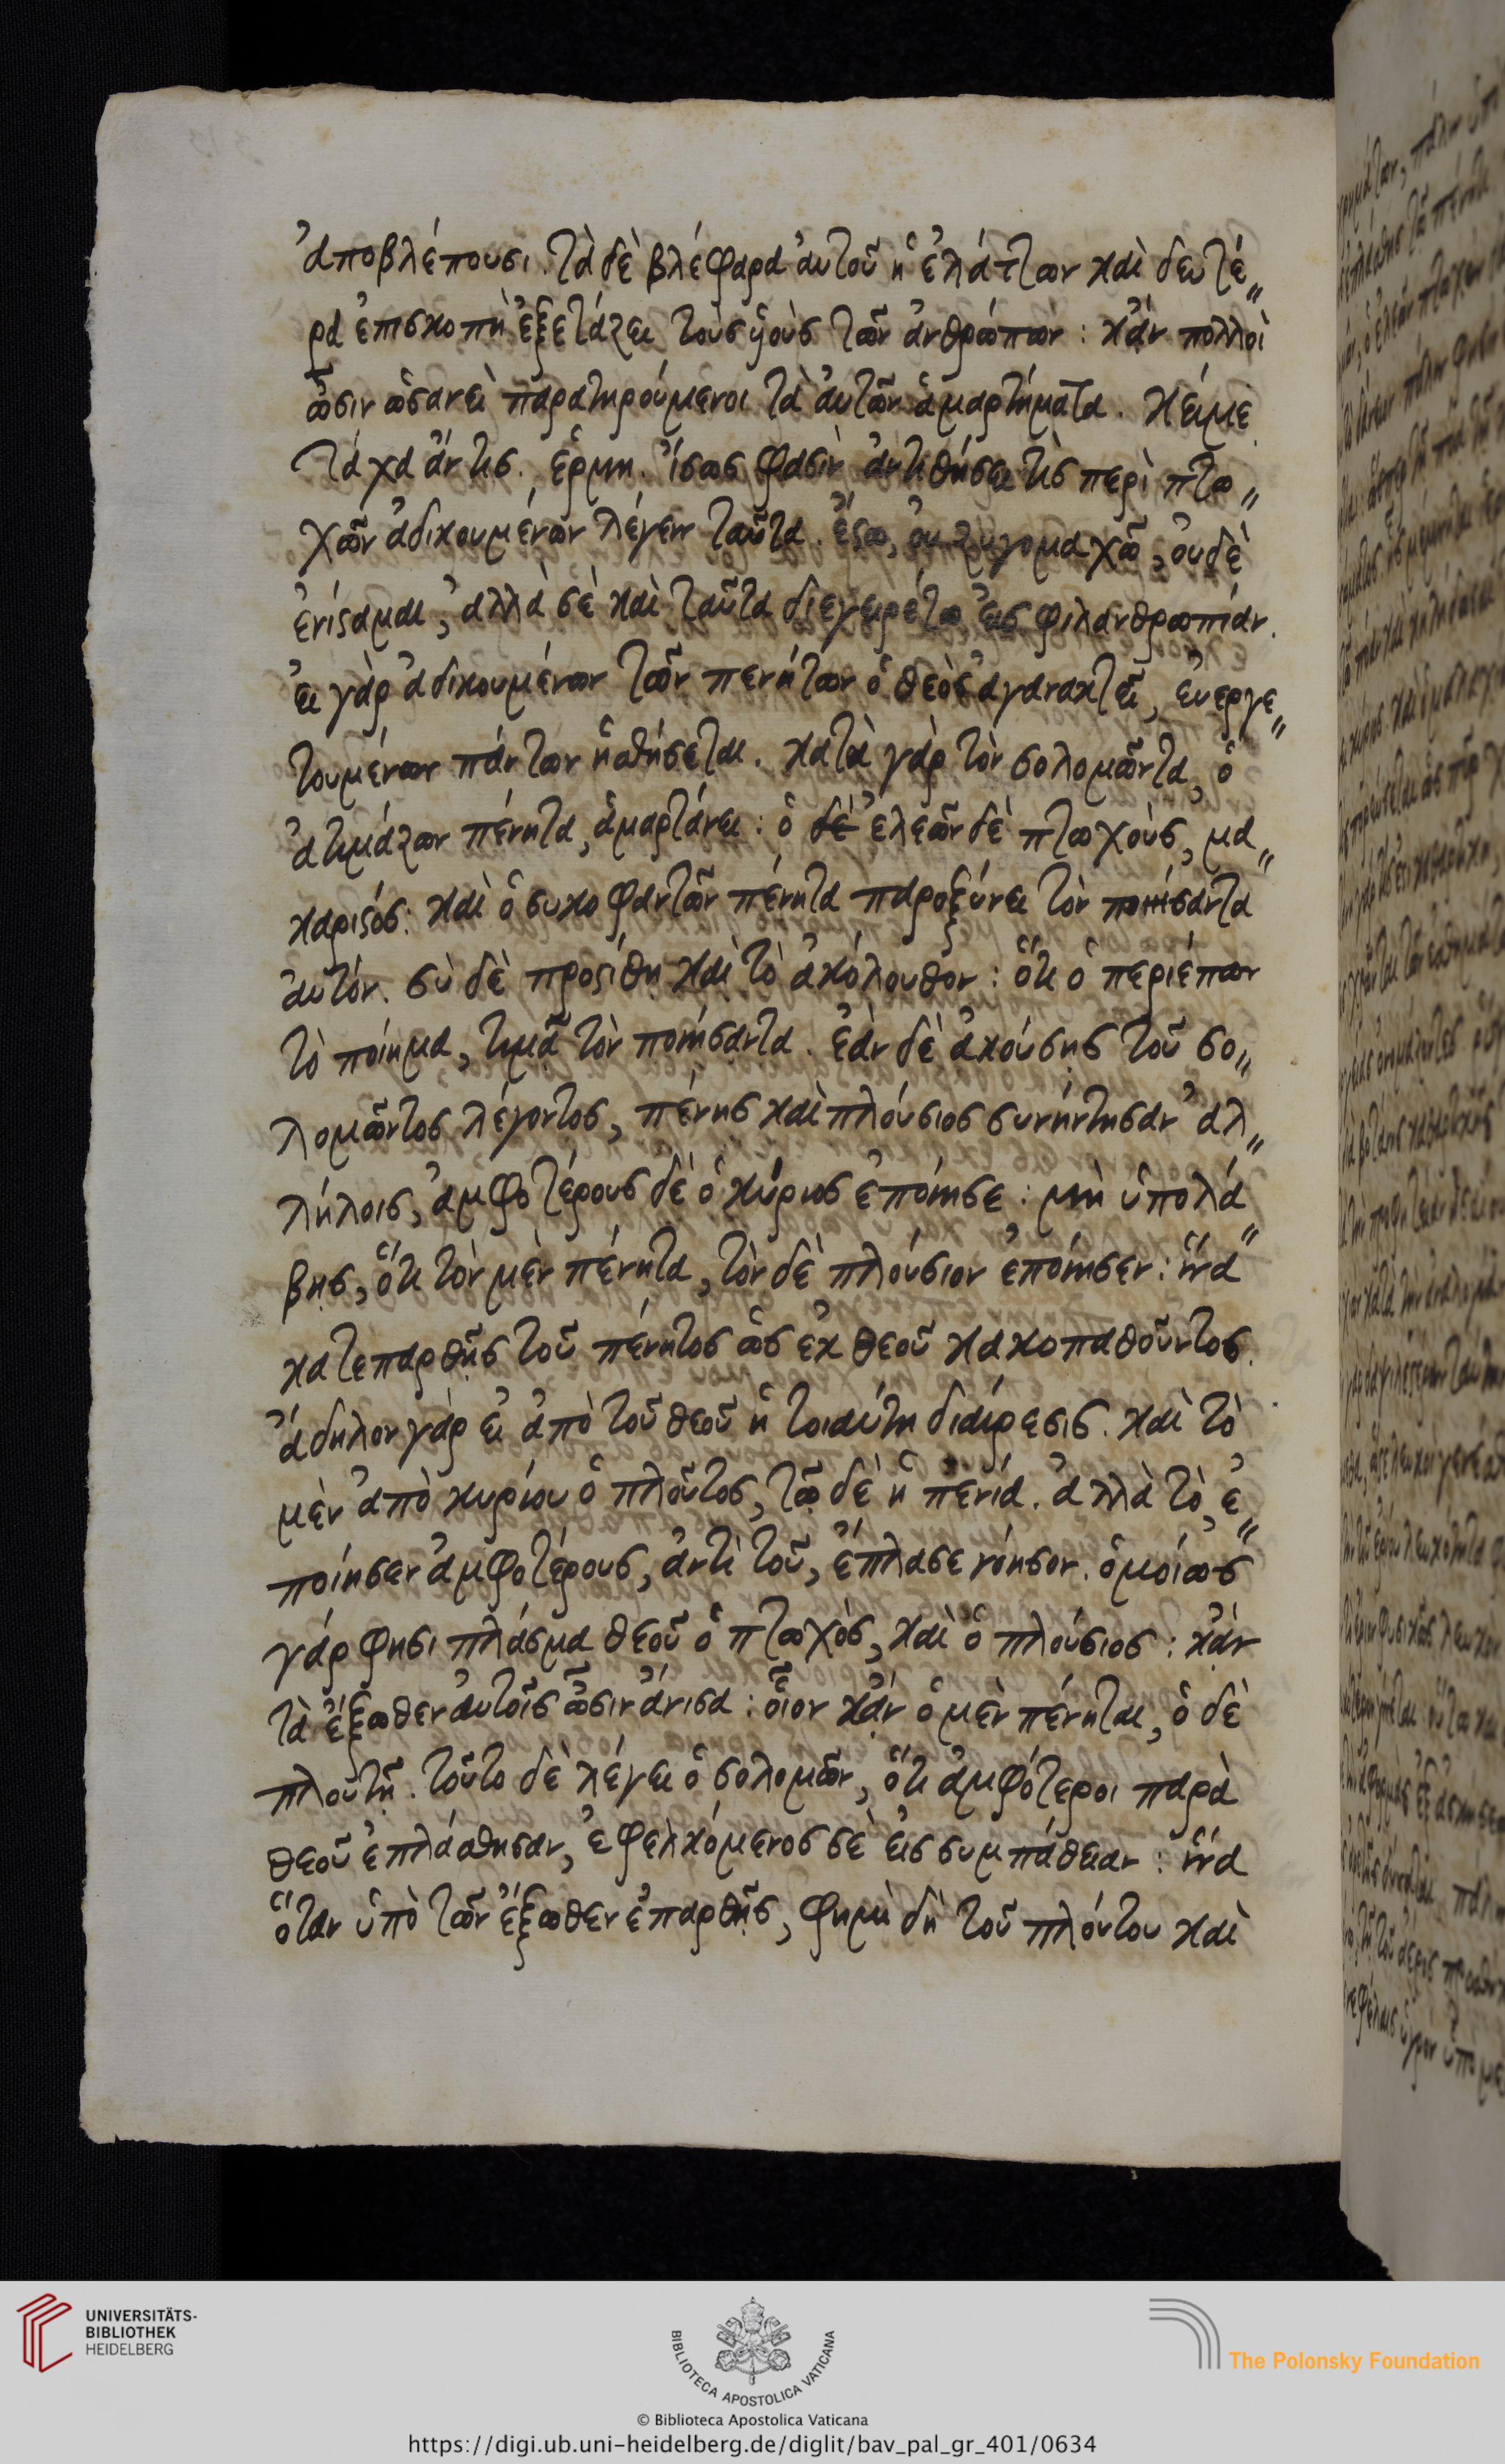 ἀποβλέπουσι. τὰ δὲ βλέφαρα ἀυτοῦ ἡ ἐλάττων καὶ δευτέ〃
ρα ἐπισκοπὴ ἐξετάζει τοὺς ὑιοὺς τῶν ἀνθρώπων: κἂν πολλοὶ
ὦσιν ὡσανεὶ παρατηρούμενοι τὰ ἀυτῶν ἁμαρτήματα. κείμε
τάχα ἄν τις. ἑρμη. ἴσως φασὶν ἀντιθήσει τὶς περὶ πτω〃
χῶν ἀδικουμένων λέγειν ταῦτα. ἔστω, ὀυ ζυγομαχῶ, ὀυδὲ
ἐνίσταμαι, ἀλλὰ σὲ καὶ ταῦτα διεγειρέτω ἐις φιλανθρωπίαν.
ἐι γὰρ ἀδικουμένων τῶν πενήτων ὁ θεὸς ἀγανακτεῖ, ἐυεργε〃
τουμένων πάντων ἡσθήσεται. κατὰ γὰρ τὸν σολομῶντα, ὁ
ἀτιμάζων πένητα, ἁμαρτάνει: ὁ δὲ ἐλεῶν δὲ πτωχοὺς, μα〃
καριστός: καὶ ὁ συκοφαντῶν πένητα παροξύνει τὸν ποιήσαντα
ἀυτόν. σὺ δὲ προστίθη καὶ τὸ ἀκόλουθον: ὅτι ὁ περιέπων
τὸ ποίημα, τιμᾷ τὸν ποιήσαντα. ἐὰν δὲ ἀκούσῃς τοῦ σο〃
λομῶντος λέγοντος, πένης καὶ πλούσιος συνήντησαν ἀλ〃
λήλοις, ἀμφοτέρους δὲ ὁ κύριος ἐποίησε: μὴ ὑπολά〃
βῃς, ὅτι τὸν μὲν πένητα, τὸν δὲ πλούσιον ἐποίησεν: ἵνα
κατεπαρθῇς τοῦ πένητος ὡς ἐκ θεοῦ κακοπαθοῦντος.
ἄδηλον γὰρ ἐι ἀπὸ τοῦ θεοῦ ἡ τοιαύτη διαίρεσις. καὶ τὸ
μὲν ἀπὸ κυρίου ὁ πλοῦτος, τῷ δὲ ἡ πενία. ἀλλὰ τὸ, ἐ〃
ποίησεν ἀμφοτέρους, ἀντὶ τοῦ, ἔπλασε νόησον. ὁμοίως
γάρ φησι πλάσμα θεοῦ ὁ πτωχὸς, καὶ ὁ πλούσιος: κἂν
τὰ ἔξωθεν ἀυτοῖς ὦσιν ἄνισα: οἷον κἂν ὁ μὲν πένηται, ὁ δὲ
πλουτῇ. τοῦτο δὲ λέγει ὁ σολομῶν, ὅτι ἀμφότεροι παρὰ
θεοῦ ἐπλάσθησαν, ἐφελκόμενος σὲ ἐις συμπάθειαν: ἵνα
ὅταν ὑπὸ τῶν ἔξωθεν ἐπαρθῇς, φημὶ δὴ τοῦ πλούτου καὶ
UNIVERSITÄTS-
BIBLIOTHEK
HEIDELBERG
BIBLIOTECA APOSTOLICA VATICANA
The Polonsky Foundation
© Biblioteca Apostolica Vaticana
https://digi.ub.uni-heidelberg.de/diglit/bav_pal_gr_401/0634